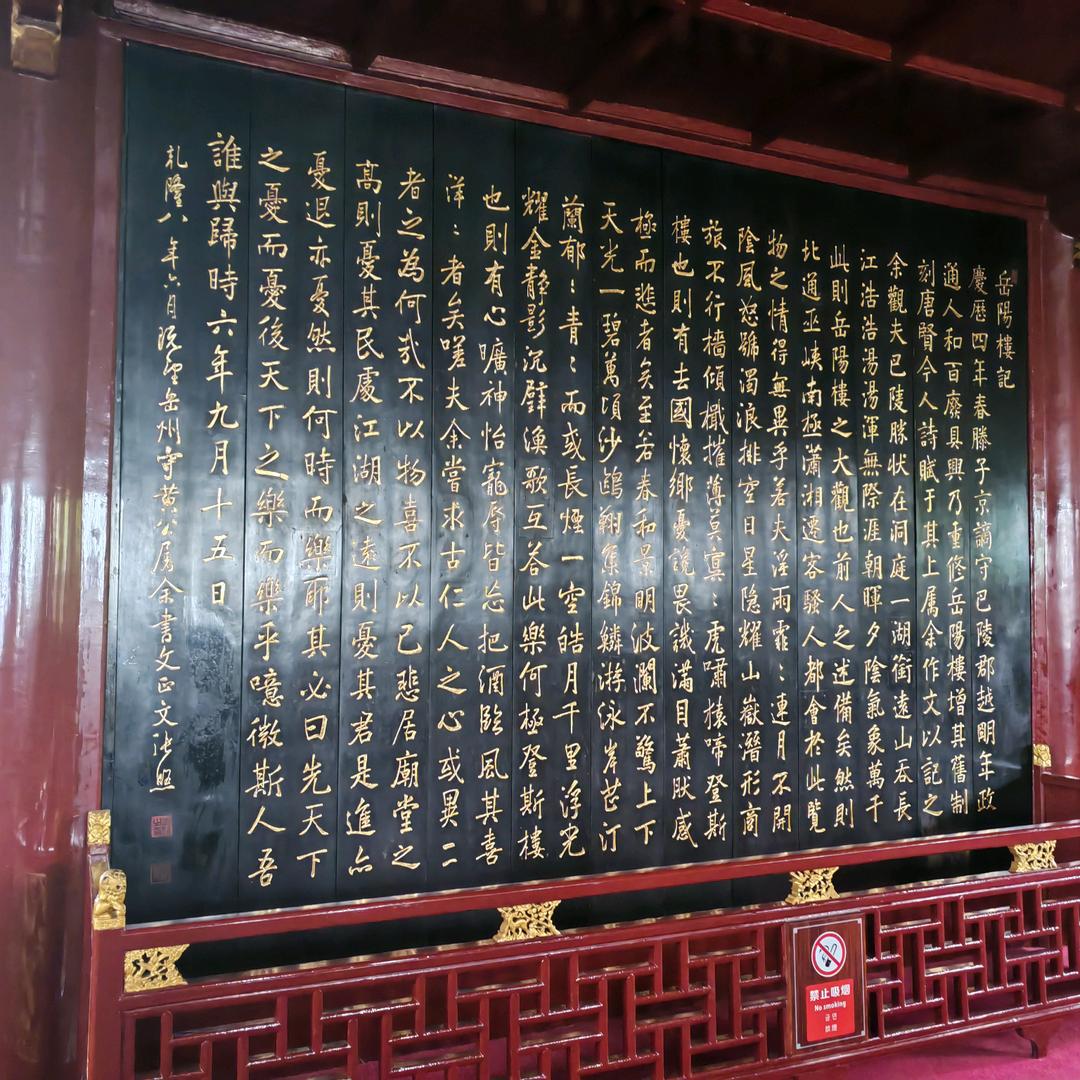 岳陽樓記
慶曆四年春滕子京謫守巴陵郡越明年政
通人和百廢具興乃重修岳陽樓增其舊制
刻唐賢今人詩賦于其上属余作文以記之
余觀夫巴陵勝狀在洞庭一湖銜遠山吞長
江浩浩湯湯渾無際涯朝暉夕陰氣象萬千
此則岳陽樓之大觀也前人之述備矣然則
北通巫峽南極瀟湘遷客騷人都會於此覽
物之情得無異乎若夫淫雨霏〻連月不開
陰風怒號濁浪排空日星隱耀山嶽潛形商
旅不行檣傾檝摧薄莫冥〻虎嘯猿啼登斯
樓也則有去國懷鄉憂讒畏譏滿目蕭然感
極而悲者矣至若春和景明波瀾不驚上下
天光一碧萬頃沙鷗翔集錦鱗游泳岸芷汀
蘭郁〻青〻而或長煙一空皓月千里浮光
耀金靜影沉璧漁歌互答此樂何極登斯樓
也則有心曠神怡寵辱皆忘把酒臨風其喜
洋〻者矣嗟夫余嘗求古仁人之心或異二
者之為何哉不以物喜不以己悲居廟堂之
高則憂其民處江湖之遠則憂其君是進亦
憂退亦憂然則何時而樂耶其必曰先天下
之憂而憂後天下之樂而樂乎噫微斯人吾
誰與歸時六年九月十五日
乾隆八年六月既望岳州守黃公屬余書文正文張照
禁止吸烟
No smoking
금연
禁煙